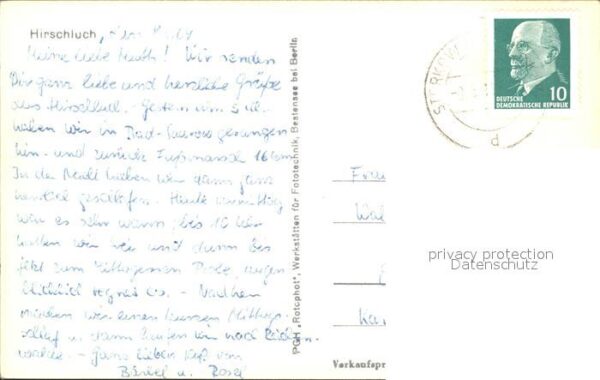 Hirschluch,
Meine liebe Muth! Wir senden
Dir ganz liebe und herzliche Grüße
aus Hirschluch. Gestern um 5 Uhr
haben wir in Bad-Saarow gesungen
hin- und zurück Fußmarsch 16 km
In der Nacht haben wir dann ganz
herrlich geschlafen. Heute vormittag
war es sehr warm, bis 10 Uhr
hatten wir frei und dann bis
jetzt zum Mittagessen Probe, augen-
blicklich regnet es. - Nachher
machen wir einen kurzen Mittags-
schlaf u. dann laufen wir nach
- Ganz lieben Kuß von
Bärbel u.
PGH „Rotophot“, Werkstätten für Fototechnik, Bestensee bei Berlin
STORKOW
10
DEUTSCHE
DEMOKRATISCHE REPUBLIK
privacy protection
Datenschutz
Verkaufspr